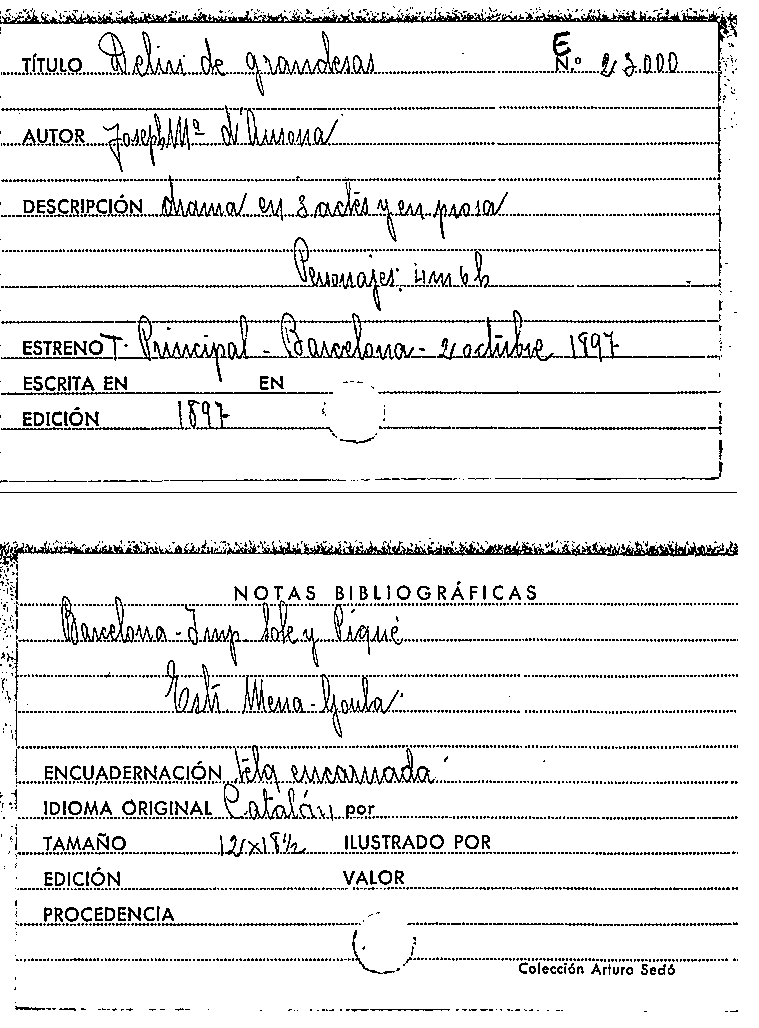 E
TÍTULO Deliri de grandesas N.º 23.000
AUTOR Joseph Mª d'Ausona
DESCRIPCIÓN drama en 3 actes y en prosa
Personajes: 4m 6h
ESTRENO T. Principal - Barcelona - 2 octubre 1897
ESCRITA EN EN
EDICIÓN 1897
NOTAS BIBLIOGRÁFICAS
Barcelona - Imp. Sole y Piqué
Estr. Mena-
ENCUADERNACIÓN tela encarnada
IDIOMA ORIGINAL Catalán por
TAMAÑO 12x18½ ILUSTRADO POR
EDICIÓN VALOR
PROCEDENCIA
Colección Arturo Sedó